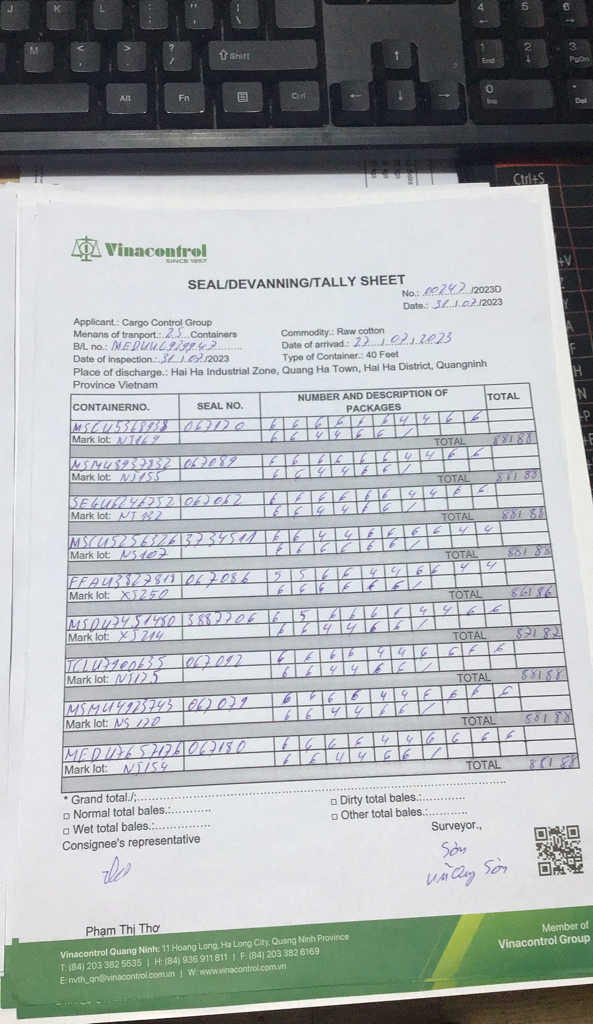 Vinacontrol
SINCE 1957
SEAL/DEVANNING/TALLY SHEET
No.: 00247 /2023D
Date.: 31 / 07 /2023
Applicant.: Cargo Control Group
Menans of tranport.: 23 Containers
Commodity.: Raw cotton
B/L no.: MEDUU4929947
Date of arrived.: 27 / 07 / 2023
Date of inspection.: 31 / 07 /2023
Type of Container.: 40 Feet
Place of discharge.: Hai Ha Industrial Zone, Quang Ha Town, Hai Ha District, Quangninh
Province Vietnam
CONTAINERNO. SEAL NO. NUMBER AND DESCRIPTION OF PACKAGES TOTAL
MSCU5368938 067170 6 6 6 6 6 6 4 4 6 6
Mark lot: NT169 6 6 4 4 6 6 /
TOTAL 88188
MSMU8937832 067089 6 6 6 6 6 6 4 4 6 6
Mark lot: NS155 6 6 4 4 6 6 /
TOTAL 88188
067062 6 6 6 6 6 6 4 4 6 6
Mark lot: NT132 6 6 4 4 6 6 /
TOTAL 88188
MSCU5256326 3734511 6 6 4 4 6 6 6 6 4 4
Mark lot: NS107 6 6 6 6 6 6 /
TOTAL 88188
FFAU3827818 067086 5 5 6 6 4 4 6 6 4 4
Mark lot: XS250 6 6 6 6 6 6 /
TOTAL 86186
MSDU7451480 3887706 6 5 6 6 6 6 4 4 6 6
Mark lot: XS214 6 6 4 4 6 6 /
TOTAL 87187
067092 6 6 6 6 4 4 6 6 6 6
Mark lot: NS125 6 6 4 4 6 6 /
TOTAL 88188
MSMU4923743 067079 6 6 6 6 4 4 6 6 6 6
Mark lot: NS 120 6 6 4 4 6 6 /
TOTAL 88188
MEDU7657176 067180 6 6 6 6 4 4 6 6 6 6
Mark lot: NS154 6 6 4 4 6 6 /
TOTAL 88188
* Grand total./;
□ Normal total bales.:
□ Dirty total bales.:
□ Wet total bales.:
□ Other total bales.:
Consignee's representative
Surveyor.,
Sơn
Sơn
Phạm Thị Thơ
Vinacontrol Quang Ninh: 11 Hoang Long, Ha Long City, Quang Ninh Province
T: (84) 203 382 5535 | H: (84) 936 911 811 | F: (84) 203 382 6169
E: nvth_qn@vinacontrol.com.vn | W: www.vinacontrol.com.vn
Member of
Vinacontrol Group
Shift
Alt Fn Ctrl
End
PgDn
Ins
Del
Ctrl+S